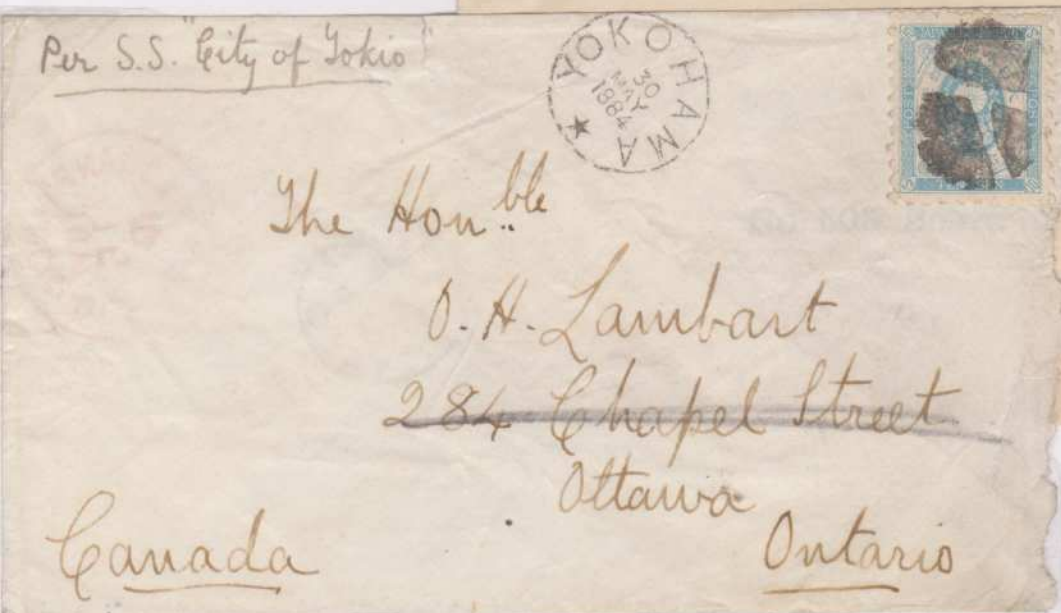 Per S.S. "City of Tokio"
YOKOHAMA
30
MAY
1884
The Hon.ble
O. H. Lambart
284 Chapel Street
Ottawa
Canada
Ontario